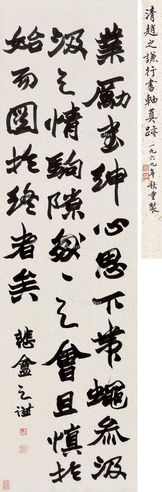 清趙之謙行書軸真跡 一九六九年秋重裝
業勵書紳心思下帶蠅汲
汲之情駒隙之會且慎於
始而圖於終者矣
悲盦之謙